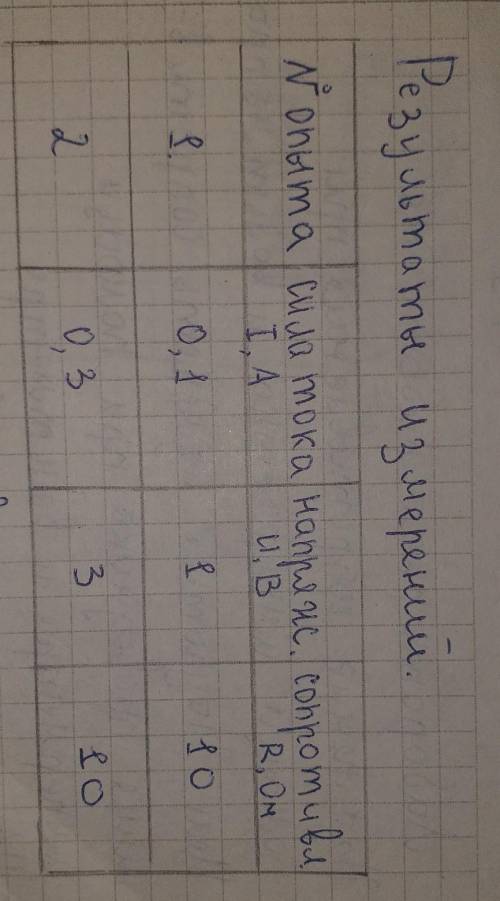 Результаты измерений.
№ опыта сила тока I, А напряж. U, В сопротивл. R, Ом
1 0,1 1 10
2 0,3 3 10